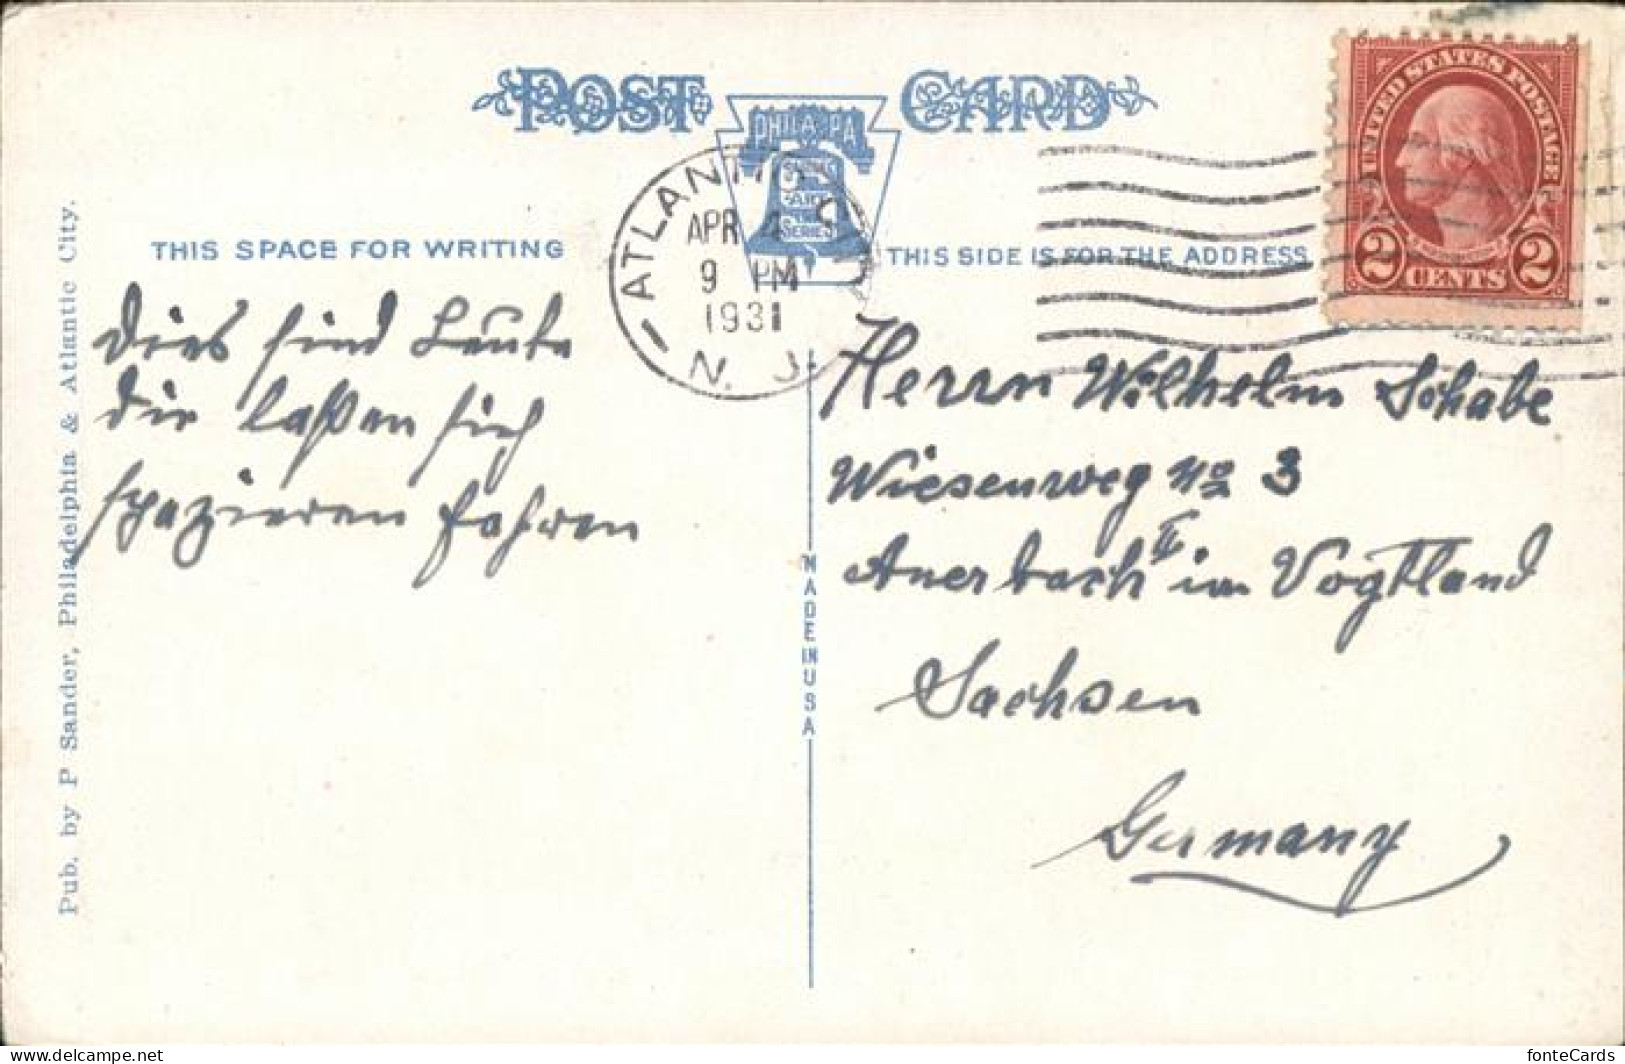 POST CARD
PHILA PA
SERIES
ATLANTIC CITY
APR 4
9 PM
1931
N. J.
UNITED STATES POSTAGE
2 CENTS 2
THIS SPACE FOR WRITING
THIS SIDE IS FOR THE ADDRESS
Dies sind Leute
die laßen sich
spazieren fahren
Herrn Wilhelm Schabe
Wiesenweg No 3
Auerbach II im Vogtland
Sachsen
Germany
Pub. by P Sander, Philadelphia & Atlantic City.
MADE IN USA
fonteCards